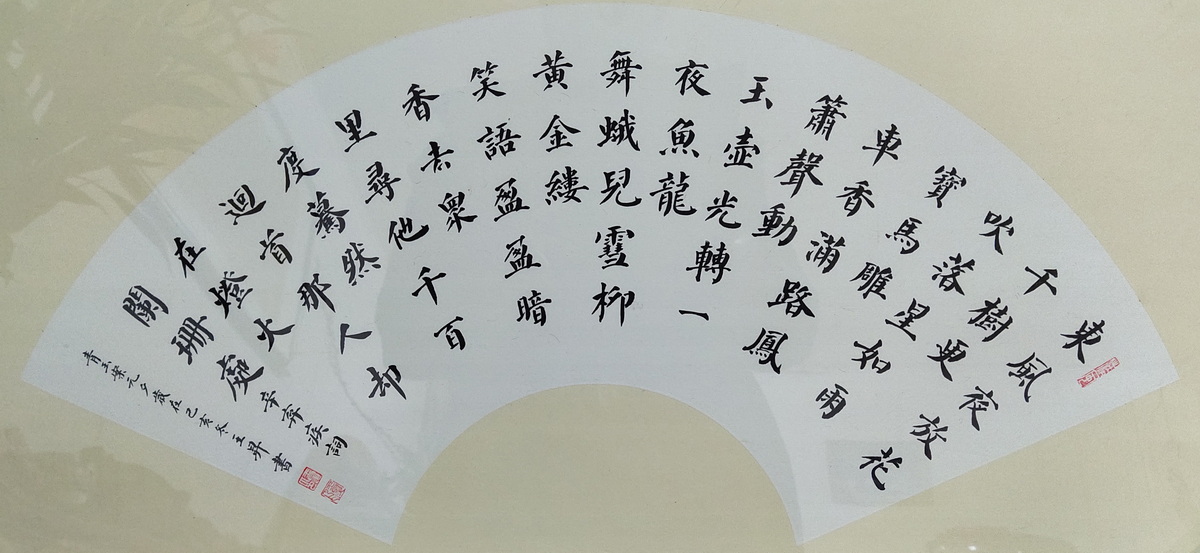 東風夜放花
千樹更
吹落星如雨
寶馬雕
車香滿路鳳
簫聲動
玉壺光轉一
夜魚龍
舞蛾兒雪柳
黃金縷
笑語盈盈暗
香去衆
里尋他千百
度驀然
迴首那人却
在燈火
闌珊處 辛棄疾詞
青玉案元夕歲在己亥冬王昇書